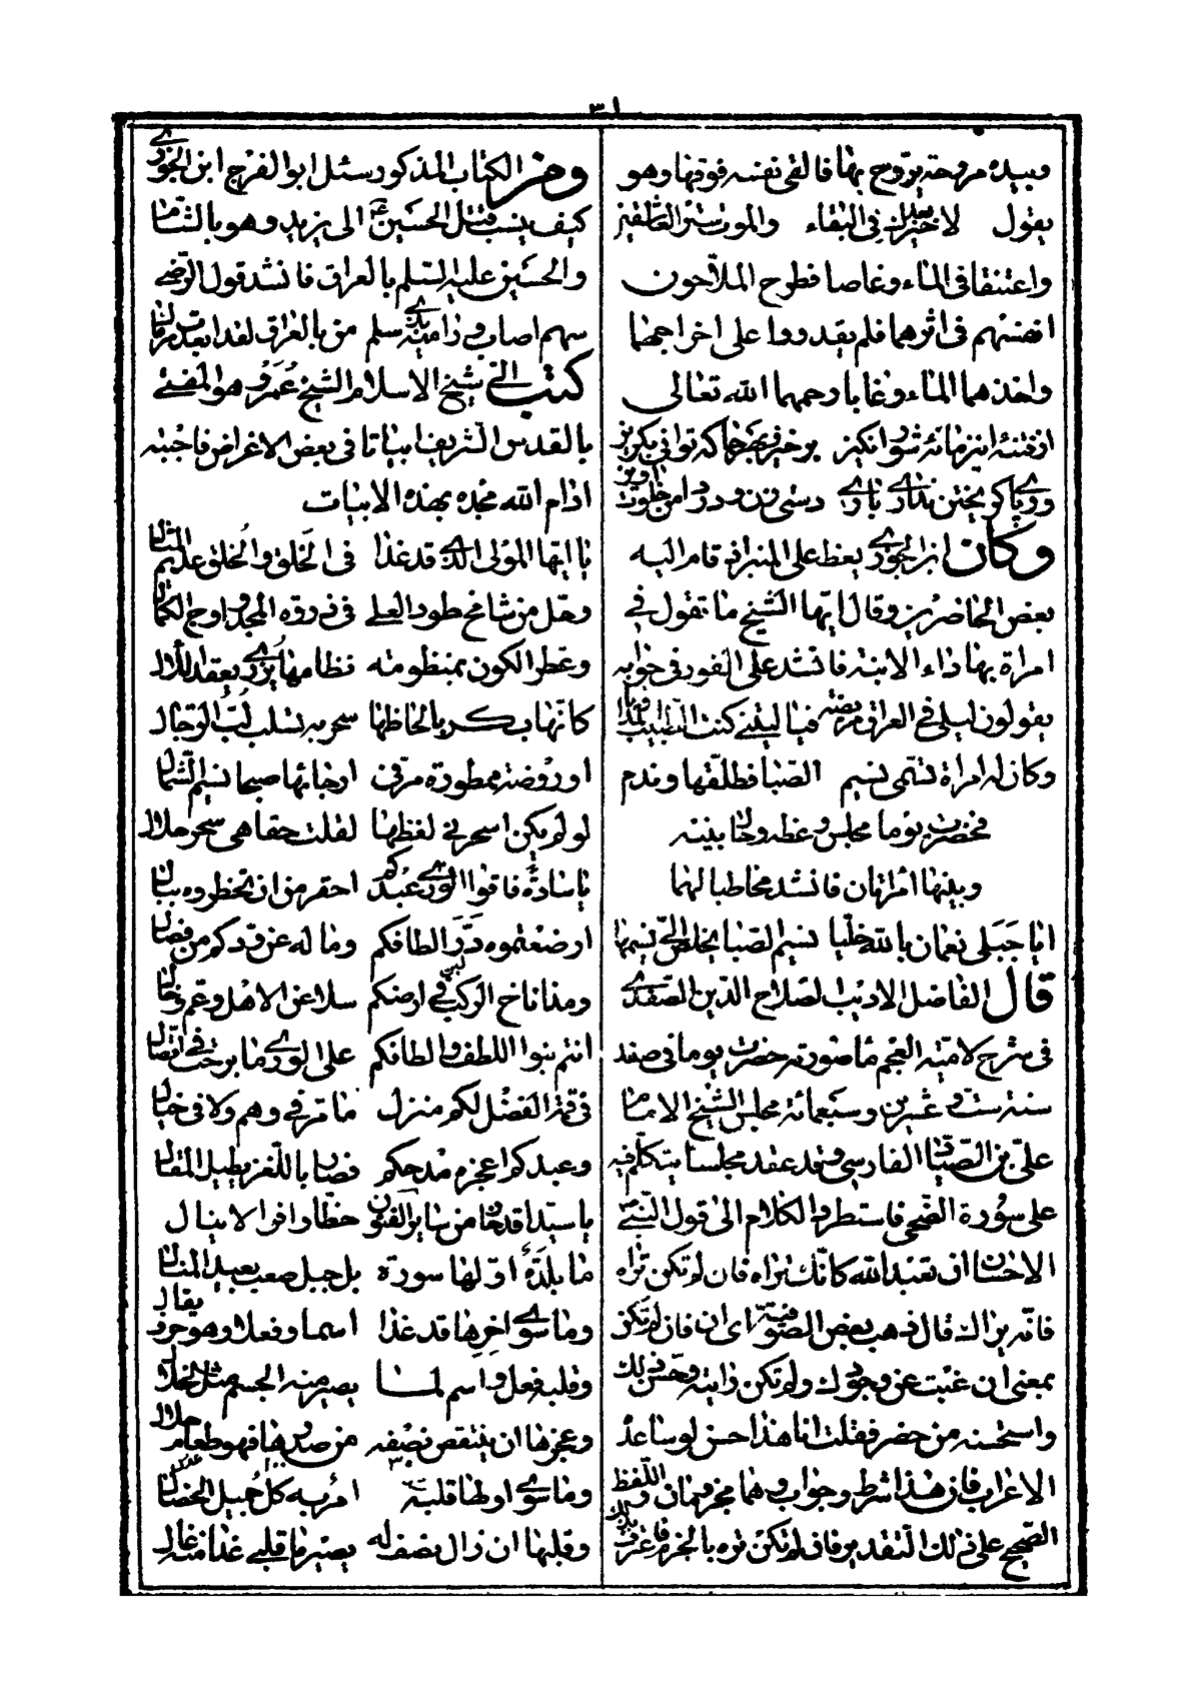 ٣١
وبيده مروحة يروح بها فالقى نفسه فوقها وهو
يقول لا خير بعدك فى البقاء والموت ستر العاشقين
واعتنقا فى الماء وغاصا فطرح الملاحون
انفسهم فى اثرهما فلم يقدروا على اخراجهما
واخذهما الماء وغابا رحمهما الله تعالى
از فتنهٔ این زمانهٔ شورانگیز برخیز و بهرجا که توانى بگریز
ورپاى گریختن ندارى بارى دستى زن و در دامن خلوت آویز
وكان ابن الجوزى يعظ على المنبر اذ قام اليه
بعض الحاضرين وقال ايها الشيخ ما تقول فى
امراة بها داء الابنة فانشد على الفور فى جوابه
يقولون ليلى فى العراق مريضة فيا ليتنى كنت الطبيب المداويا
وكان له امراة تسمى نسيم الصبا فطلقها وندم
فحضرت يوما مجلس وعظه وحال بينه
وبينها امرأتان فانشد مخاطبا لهما
ايا جبلى نعمان بالله خليا نسيم الصبا يخلص الى نسيمها
قال الفاضل الاديب لصلاح الدين الصفدى
فى شرح لامية العجم ما صورته حضرت يوما فى صفد
سنة ست وعشرين وسبعمائة مجلس الشيخ الامام
على بن الصياد الفارسى وقد عقد مجلسا يتكلم فيه
على سورة الضحى فاستطرد الكلام الى قول النبى
الاحسان ان تعبد الله كانك تراه فان لم تكن تراه
فانه يراك قال ذهب بعض الصوفية اى ان فان لم تكن
بمعنى ان غبت عن وجودك ولم تكن رايته وحسن ذلك
واستحسنه من حضر فقلت انا هذا حسن لو ساعد
الاعراب فان هذا شرط وجواب وهما مجزومان واللفظ
الصحيح على ذلك التقدير فان لم تكن تره بالجزم
ومن الكتاب المذكور سئل ابو الفرج ابن الجوزى
كيف ينسب قتل الحسين ع الى يزيد وهو بالشام
والحسين عليه السلم بالعراق فانشد قول الرضى
سهم اصاب وراميه بذى سلم من بالعراق لقد ابعدت مرماك
كتب الى شيخ الاسلام الشيخ عمر وهو المفتى
بالقدس الشريف ابياتا فى بعض الاغراض فاجبته
ادام الله مجده بهذه الابيات
يا ايها المولى الذى قد غدا فى الخلق والخلق عديم المثال
وحل من شامخ طود العلى فى ذروة المجد واوج الكمال
وعطر الكون بمنظومة نظامها يزرى بعقد اللأال
كانها بكر بالحاظها سحر به تسلب لب الرجال
او روضة ممطورة مر فى ارجائها صبحا نسيم الشمال
لو لم يكن اسحرنى لفظها لقلت حقا هى سحر حلال
يا سادة فاقوا الورى عبدكم احقر من ان تخطروه ببال
ارضعتموه در الطافكم وما له عن ودكم من فصال
ومذ اناخ الركب فى ارضكم سلا عن الاهل وعم وخال
انتم بنوا اللطف والطافكم على الورى ما برحت فى اتصال
فى قمة الفضل لكم منزل ما مر فى وهم ولا فى خيال
وعبدكم اعجزه مدحكم فصار باللغز يطيل المقال
يا سيدا قد حاز من سائر الفنون حظا وافرا لا ينال
ما بلدة اولها سورة بل جبل صعب بعيد المنال
وما سوى اخرها قد غدا اسما وفعلا وهو حرف يقال
وقلبه فعل واسم لما يصير منه الجسم مثل الخلال
وعجزها ان ينتقص نصفه من صدرها فهو طعام حلال
وما سوى اولها قلبه امر به كل جميل الخصال
وقلبها ان زال نصف له يصير ما قلبى غدا منه غال